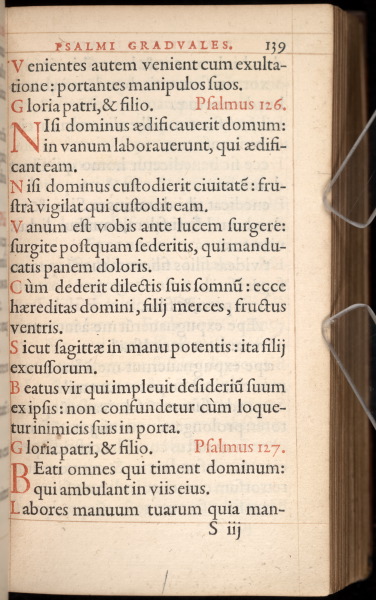 PSALMI GRADVALES. 139
Venientes autem venient cum exulta-
tione: portantes manipulos suos.
Gloria patri, & filio. Psalmus 126.
NIsi dominus ædificauerit domum:
in vanum laborauerunt, qui ædifi-
cant eam.
Nisi dominus custodierit ciuitatē: fru-
strà vigilat qui custodit eam.
Vanum est vobis ante lucem surgere:
surgite postquam sederitis, qui mandu-
catis panem doloris.
Cùm dederit dilectis suis somnū: ecce
hæreditas domini, filij merces, fructus
ventris.
Sicut sagittæ in manu potentis: ita filij
excussorum.
Beatus vir qui impleuit desideriū suum
ex ipsis: non confundetur cùm loque-
tur inimicis suis in porta.
Gloria patri, & filio. Psalmus 127.
BEati omnes qui timent dominum:
qui ambulant in viis eius.
Labores manuum tuarum quia man-
S iij